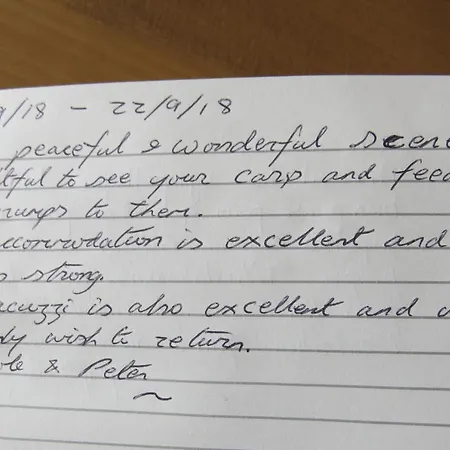 9/18 - 22/9/18
peaceful & wonderful scene
tful to see your carp and feed
rumps to them.
ccommodation is excellent and
s strong.
acuzzi is also excellent and
ly wish to return.
ole & Peter